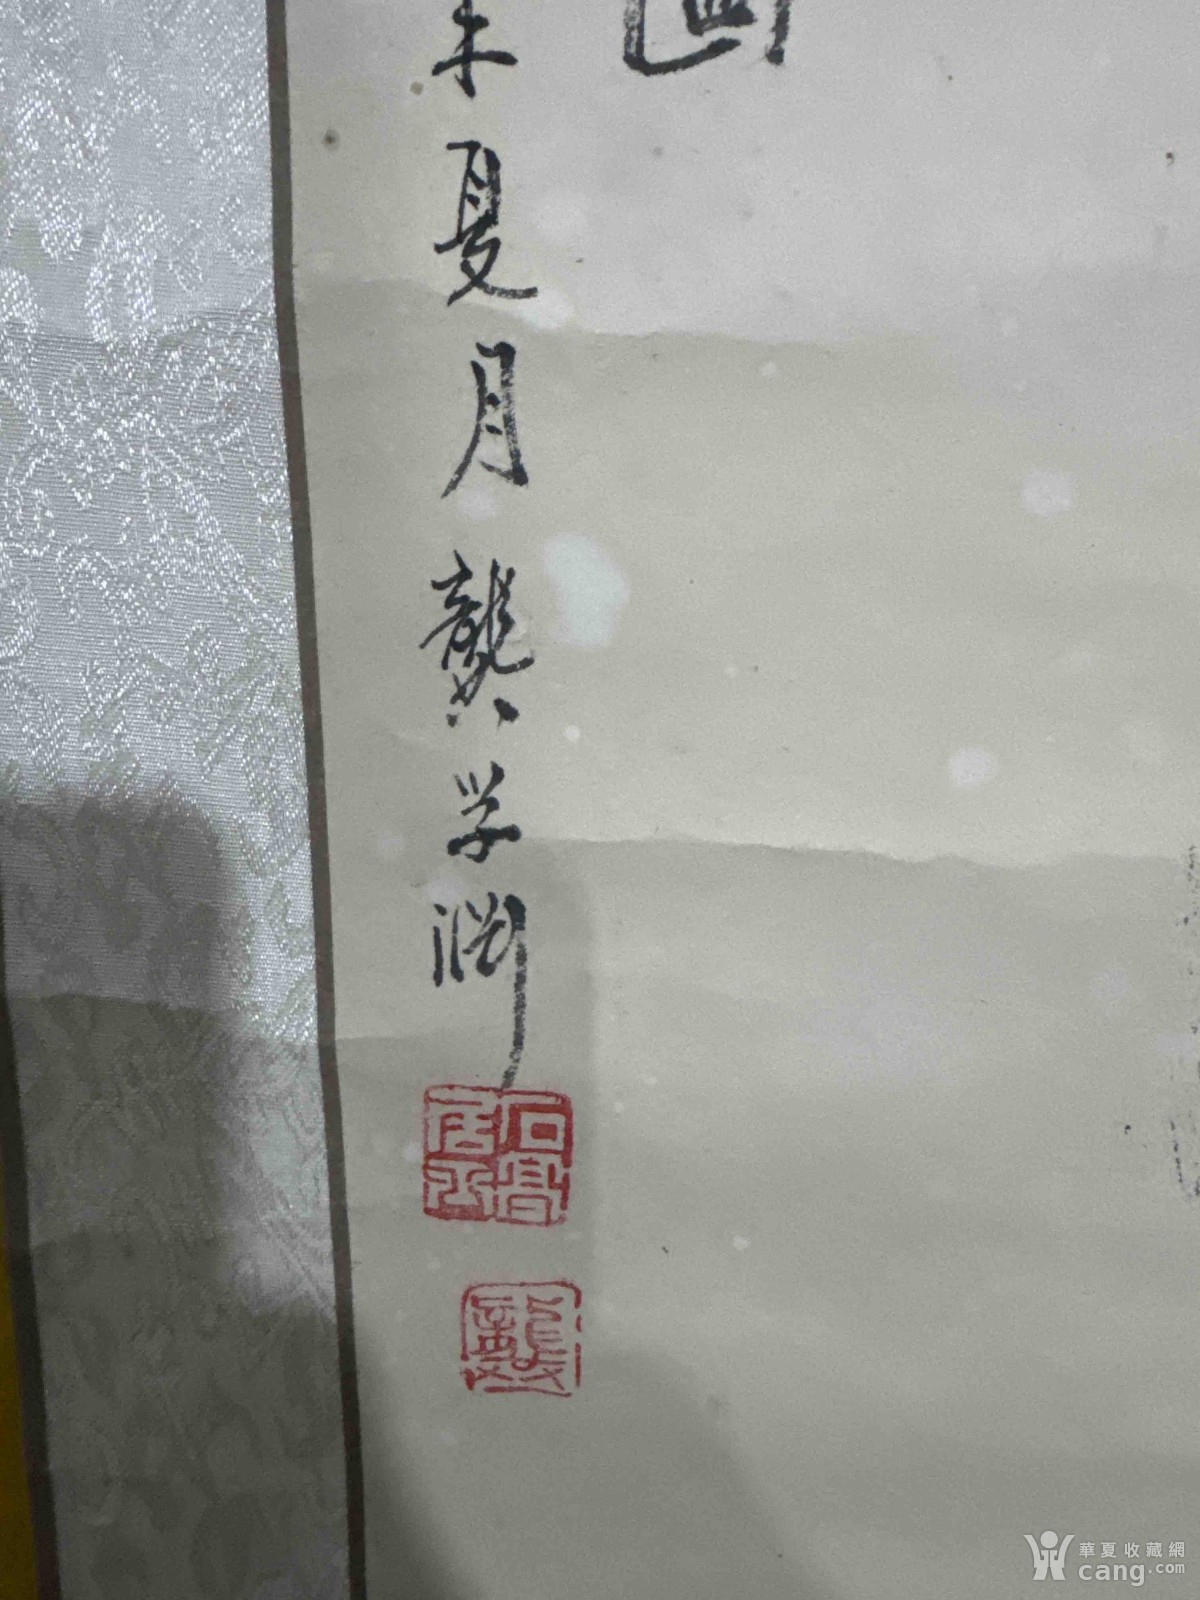 圖
未夏月龔学渊
石髯
居士
龔
華夏收藏網
cang.com